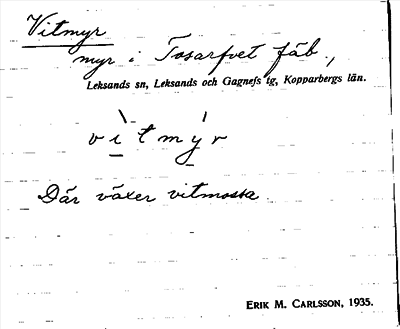 Vitmyr
myr i Tosarfvet fäb.,
Leksands sn, Leksands och Gagnefs tg, Kopparbergs län.
vìtmýr
Där växer vitmossa.
ERIK M. CARLSSON, 1935.